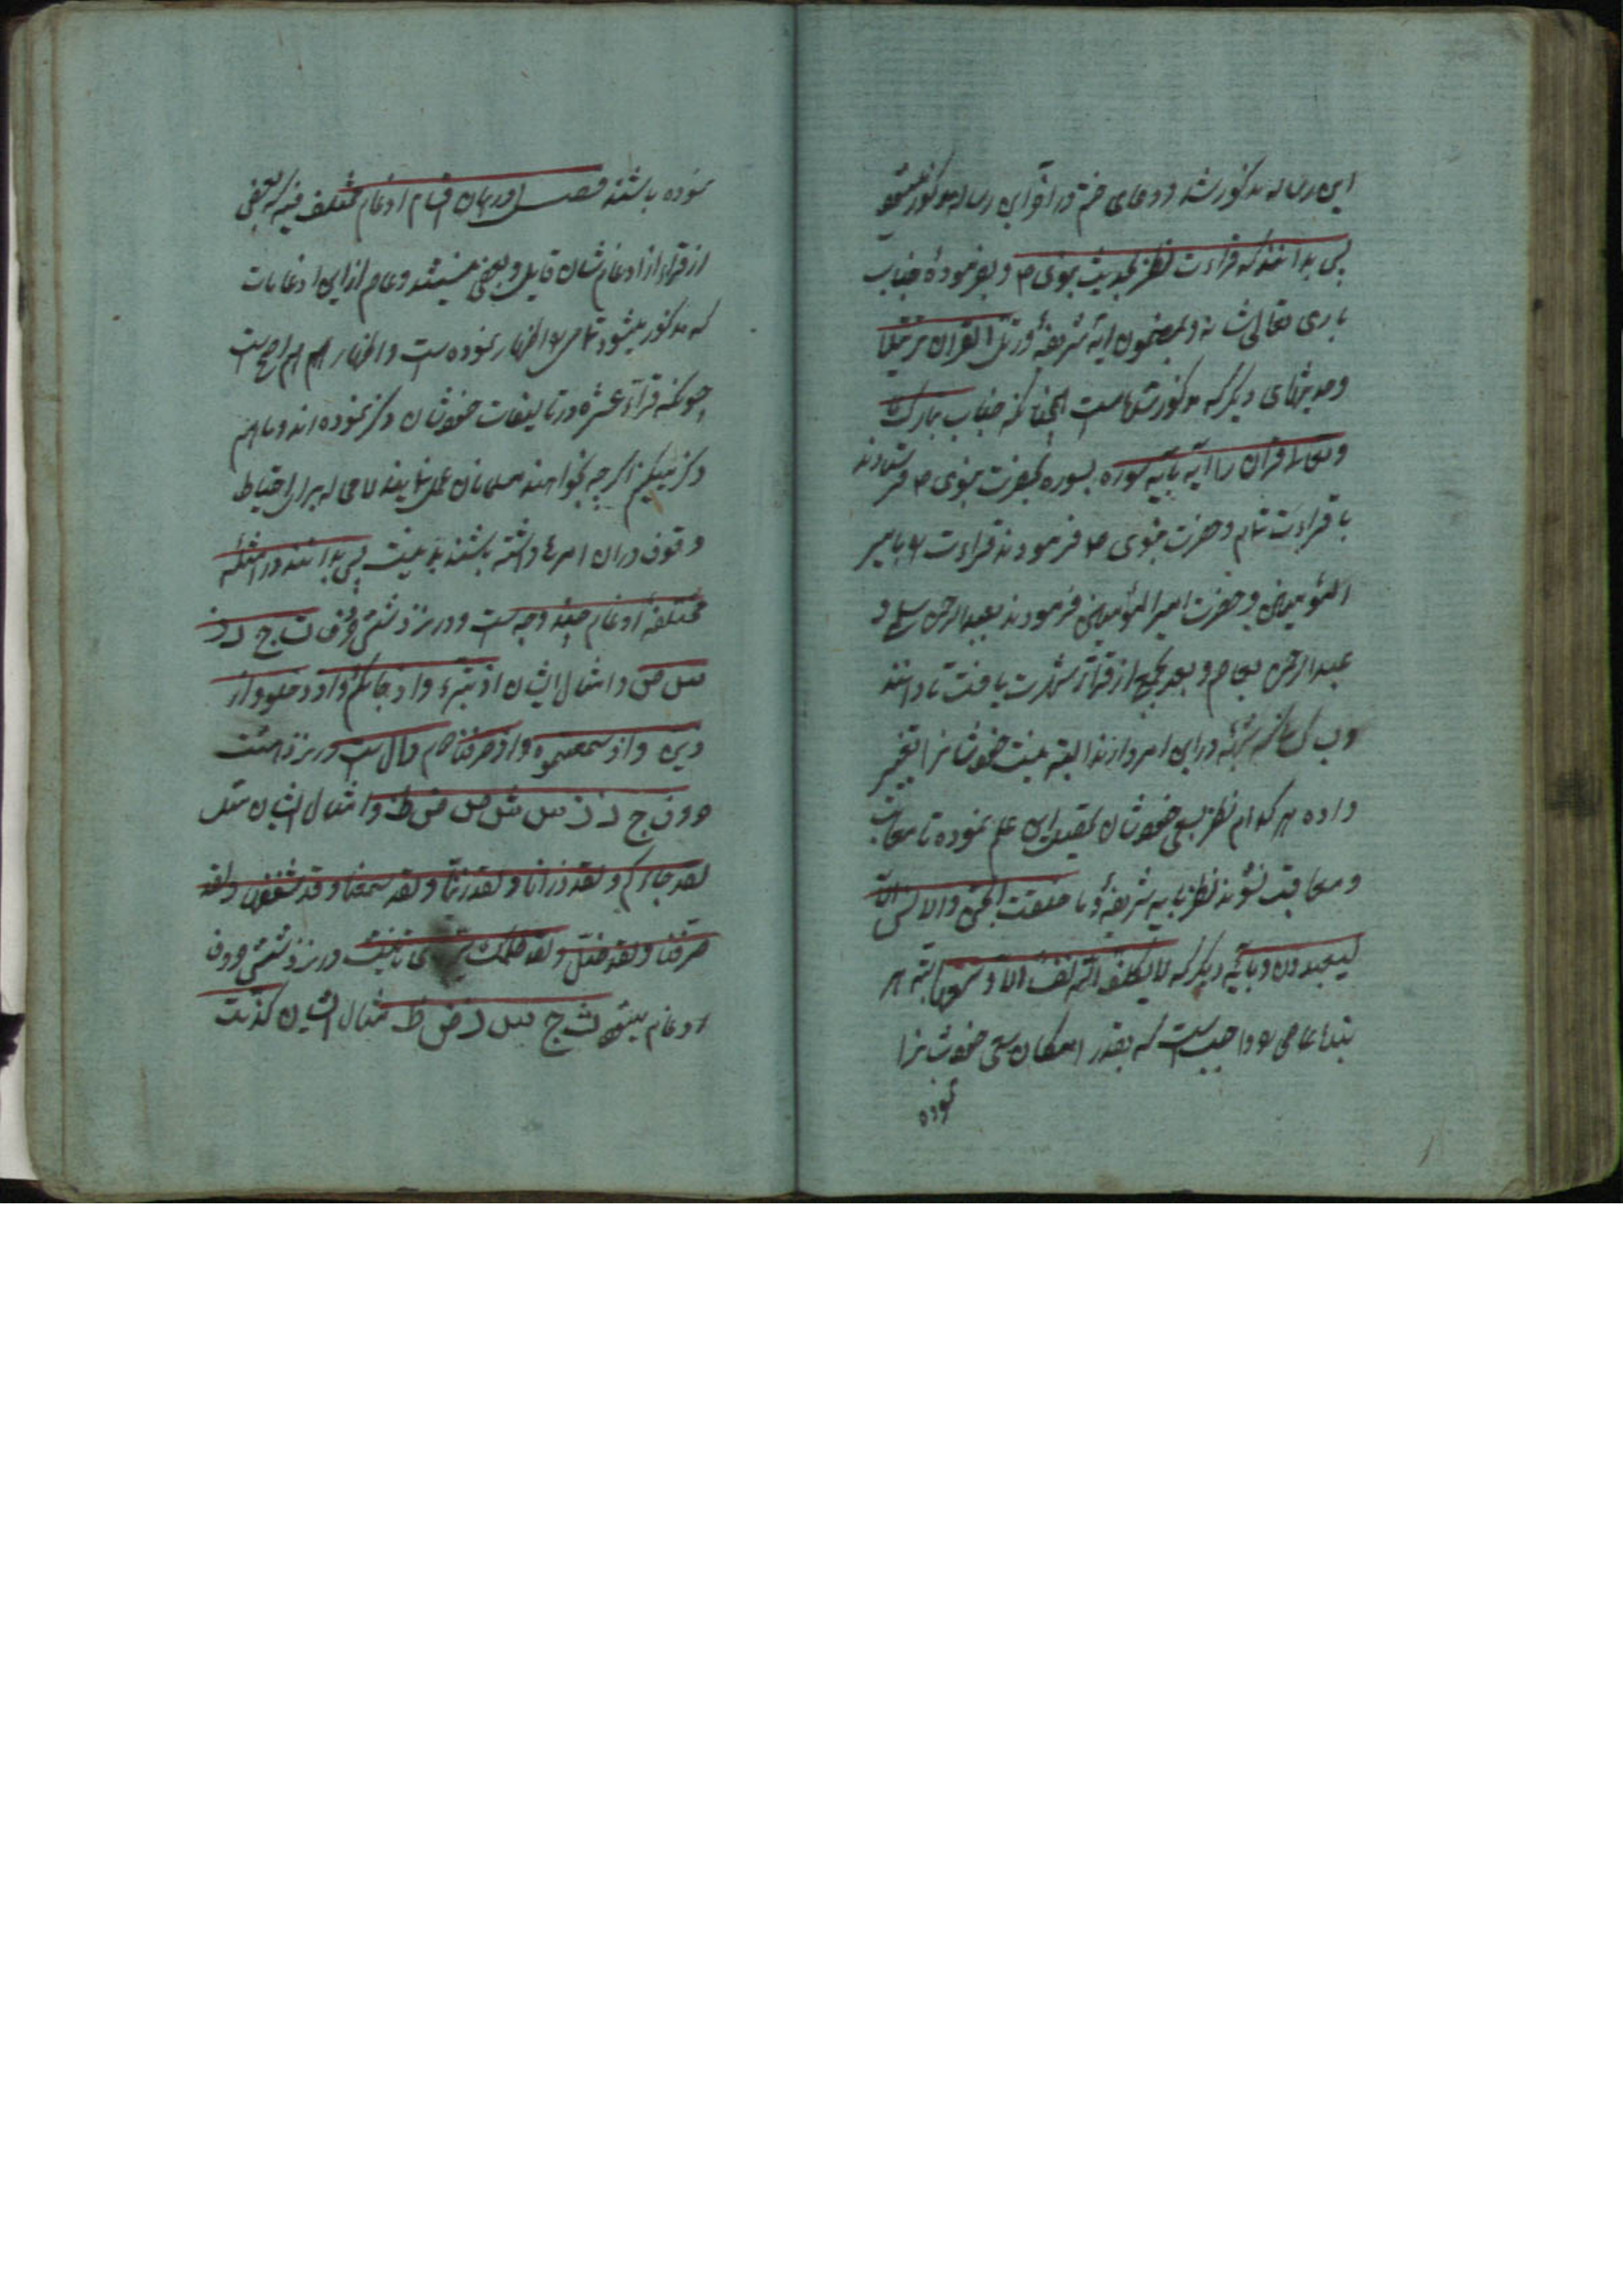 این رساله مذکور شد و دعای ختم در آخر این رساله مذکور میشود
پس بدانند که قراءت نظر بحدیث نبوی ص و بفرمودهٔ جناب
باری تعالی شانه و بمضمون آیهٔ شریفهٔ ورتل القران ترتیلا
و حدیثهای دیگر که مذکور شد است همچنانکه جناب مبارک
و تعالی قران را آیه بآیه سوره بسوره بحضرت نبوی ص فرستادند
با قراءت تمام و حضرت نبوی ص فرمودند قراءت را بامیر
المؤمنین و حضرت امیر المؤمنین فرمودند بعبدالرحمن سلمی و
عبدالرحمن بعاصم و بعد بجمع از قراء شهرت یافت تا دانند
در این امر دارند البته نیت خودشانرا تغییر
داده هر کدام نظر بسعی خودشان تحصیل این علم نموده تا معاتب
و معاقب نشوند نظر بآیه شریفهٔ و ما خلقت الجن والانس الا
لیعبدون و بآیه دیگر که لا یکلف الله نفسا الا وسعها البته هر
بنده عاصی را واجب است که بقدر امکان سعی خودشانرا
نموده
نموده باشند فصل در بیان اقسام ادغام مختلف فیه که بعضی
از قراء از ادغامشان قایل و بعضی نیستند و عاصم از این ادغامات
که مذکور میشود تمامی را اظهار نموده است و اظهار هم اصح است
چونکه قراء عشره در تالیفات خودشان ذکر نموده اند ما هم
ذکر میکنیم اگر چه بخواهند مسلمانان عمل نمایند لا محاله برای احتیاط
وقوف در آن امر ها داشته باشند بد نیست پس بدانند در امثلهٔ
مختلفهٔ ادغام چند وجه است و در نزد شش حرف ت ج د ز
س ص و امثال ایشان اذ تبرء و اذ جائکم و اذ دخلوا و اذ
زین و اذ سمعتموه و اذ صرفنا دال است در نزد هشت
حروف ج ذ ز س ش ص ض ظ و امثال ایشان مثل
لقد جاءکم و لقد ذرانا و لقد زینا و لقد سمعنا و قد شغفها و لقد
صرفنا و لقد ضل و لقد ظلمک تای تانیث در نزد شش حروف
ادغام میشود ث ج س ز ص ظ مثال ایشان کذبت